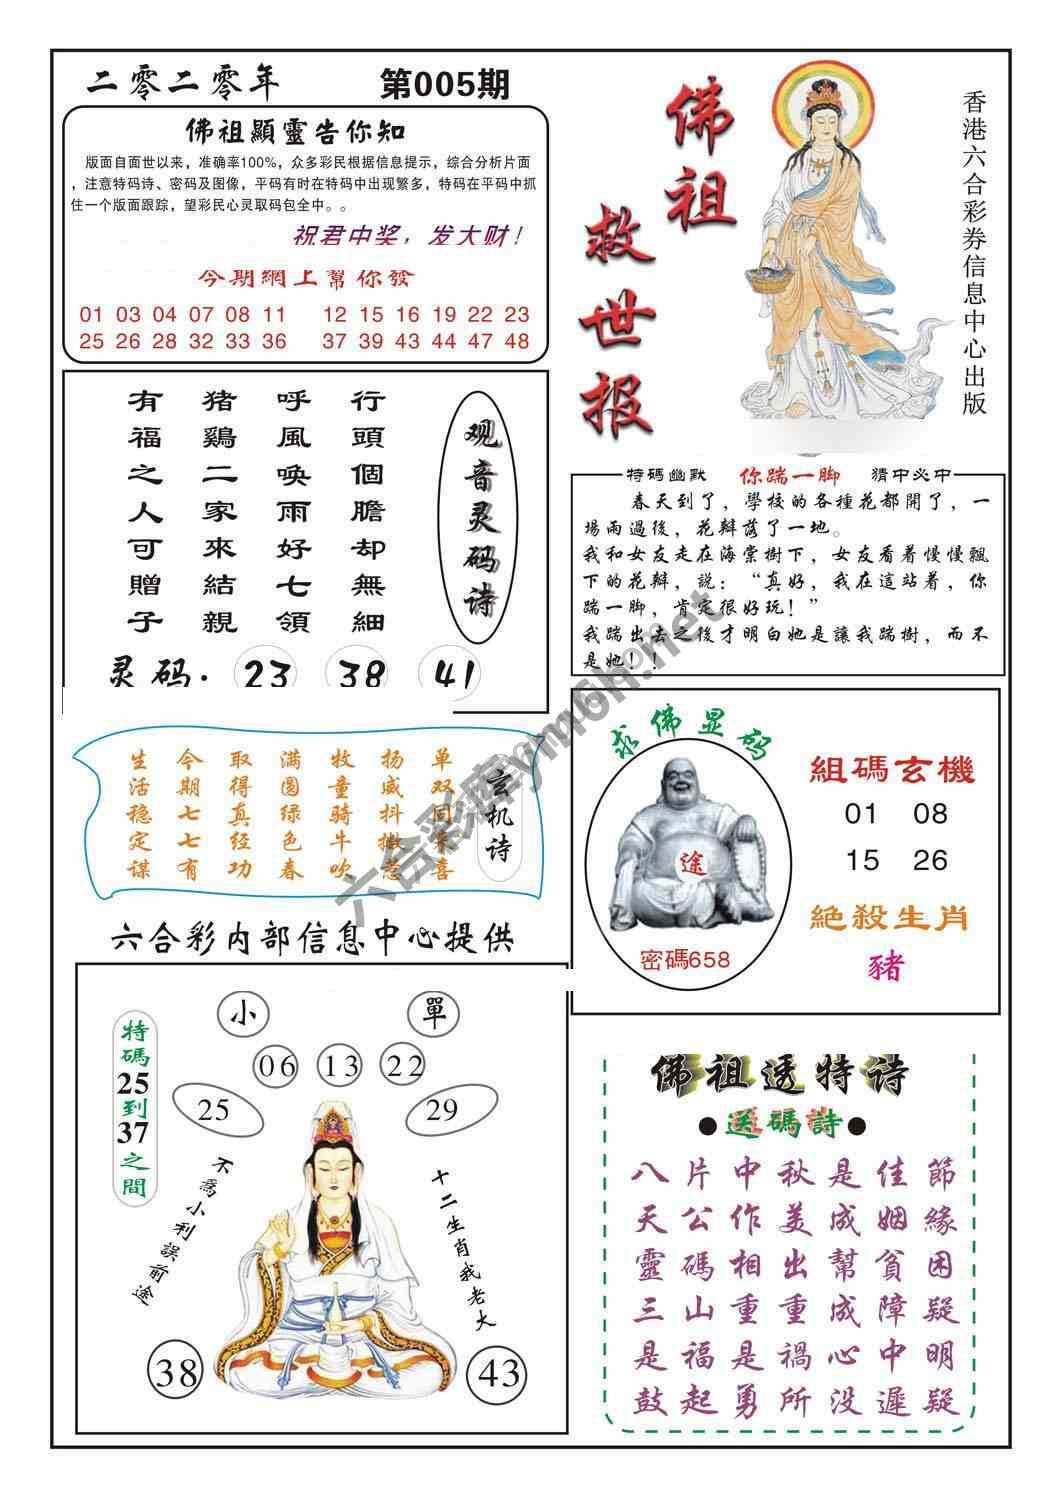 二零二零年
第005期
佛祖顯靈告你知
版面自面世以来，准确率100%，众多彩民根据信息提示，综合分析片面
，注意特码诗、密码及图像，平码有时在特码中出现繁多，特码在平码中抓
住一个版面跟踪，望彩民心灵取码包全中。。
祝君中奖，发大财！
今期網上幫你發
01 03 04 07 08 11 12 15 16 19 22 23
25 26 28 32 33 36 37 39 43 44 47 48
佛祖救世报
香港六合彩券信息中心出版
观音灵码诗
行頭個膽却無細
呼風唤雨好七領
猪鷄二家來結親
有福之人可贈子
灵码·23 38 41
特碼幽默 你踹一脚 猜中必中
春天到了，學校的各種花都開了，一
場雨過後，花瓣落了一地。
我和女友走在海棠樹下，女友看着慢慢飄
下的花瓣，説：“真好，我在這站着，你
踹一脚，肯定很好玩！”
我踹出去之後才明白她是讓我踹樹，而不
是她！！
玄机诗
单双同来喜
扬威抖擞
牧童骑牛吹
满圆绿色春
取得真经功
今期七七有
生活稳定谋
求佛显码
途
密碼658
組碼玄機
01 08
15 26
絶殺生肖
豬
六合彩内部信息中心提供
小 單
06 13 22
25 29
特碼25到37之間
不爲小利誤前途
十二生肖我老大
38 43
佛祖透特诗
●送碼詩●
八片中秋是佳節
天公作美成姻緣
靈碼相出幫貧困
三山重重成障疑
是福是禍心中明
鼓起勇所没遲疑